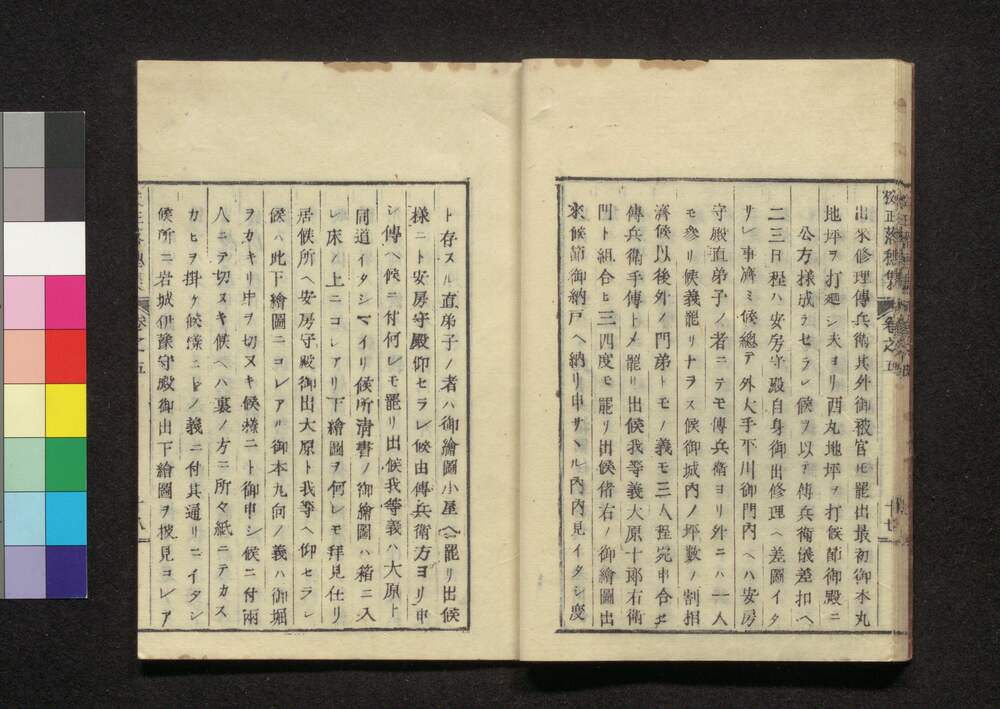 校正落穂集 巻之五
出來修理傳兵衛其外御被官モ罷出最初御本丸
地坪ヲ打廻シ夫ヨリ西丸地坪ヲ打候節御殿ニ
公方樣成ラセラレ候ヲ以テ傳兵衛儀差扣ヘ
二三日程ハ安房守殿自身御出修理ヘ差圖イタ
サレ事濟ミ候總テ外大手平川御門內ヘハ安房
守殿直弟子ノ者ニテモ傳兵衛ヨリ外ニハ一人
モ參リ候義罷リナラス候御城內ノ坪數ノ割相
濟候以後外ノ門弟トモノ義モ三人程宛申合セ
傳兵衛手傳トメ罷リ出候我等義大原十郎右衛
門ト組合ヒ三四度モ罷リ出候偖右ノ御繪圖出
來候節御納戸ヘ納リ申サヽル內內見イタシ度
ト存スル直弟子ノ者ハ御繪圖小屋ヘ罷リ出候
樣ニト安房守殿仰セラレ候由傳兵衛方ヨリ申
シ傳ヘ候ニ付何レモ罷リ出候我等義ハ大原ト
同道イタシマイリ候所淸書ノ御繪圖ハ箱ニ入
レ床ノ上ニコレアリ下繪圖ヲ何レモ拜見仕リ
居候所ヘ安房守殿御出大原ト我等ヘ仰セラレ
候ハ此下繪圖ニコレアル御本丸向ノ義ハ御堀
ヲカキリ中ヲ切ヌキ候樣ニト御申シ候ニ付兩
人ニテ切ヌキ候ヘハ裏ノ方ニ所々紙ニテカス
カヒヲ掛ケ候樣ニトノ義ニ付其通リニイタシ
候所ニ岩城伊豫守殿御出下繪圖ヲ披見コレア
巻之五
十八